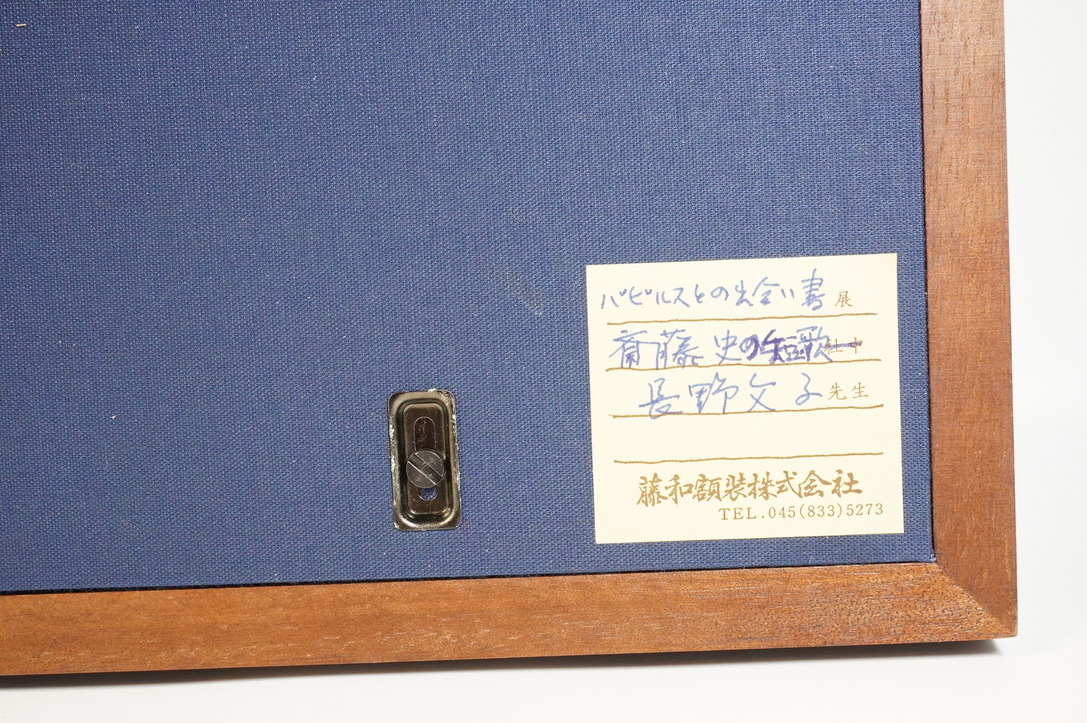 パピルスとの出会い書展
齋藤史の短歌社中
長野文子先生
藤和額装株式会社
TEL.045(833)5273